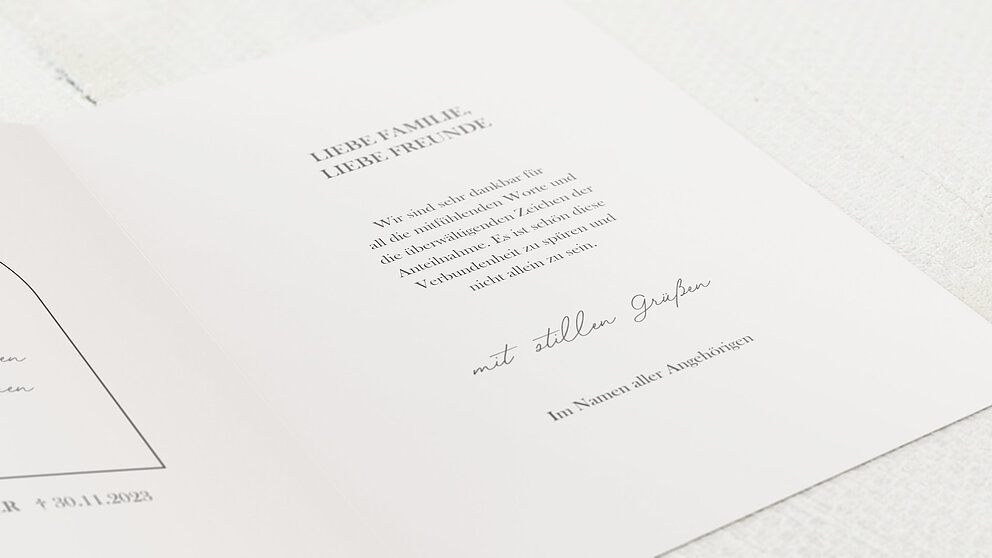 LIEBE FAMILIE,
LIEBE FREUNDE
Wir sind sehr dankbar für
all die mitfühlenden Worte und
die überwältigenden Zeichen der
Anteilnahme. Es ist schön diese
Verbundenheit zu spüren und
nicht allein zu sein.
mit stillen Grüßen
Im Namen aller Angehörigen
† 30.11.2023